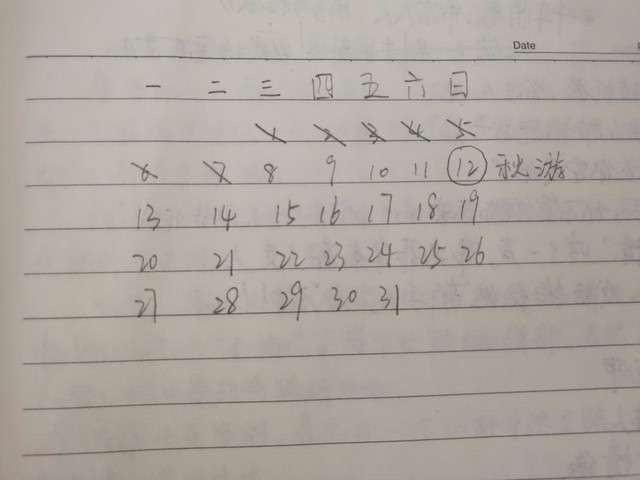 Date
一 二 三 四 五 六 日
1 2 3 4 5
6 7 8 9 10 11 12 秋游
13 14 15 16 17 18 19
20 21 22 23 24 25 26
27 28 29 30 31